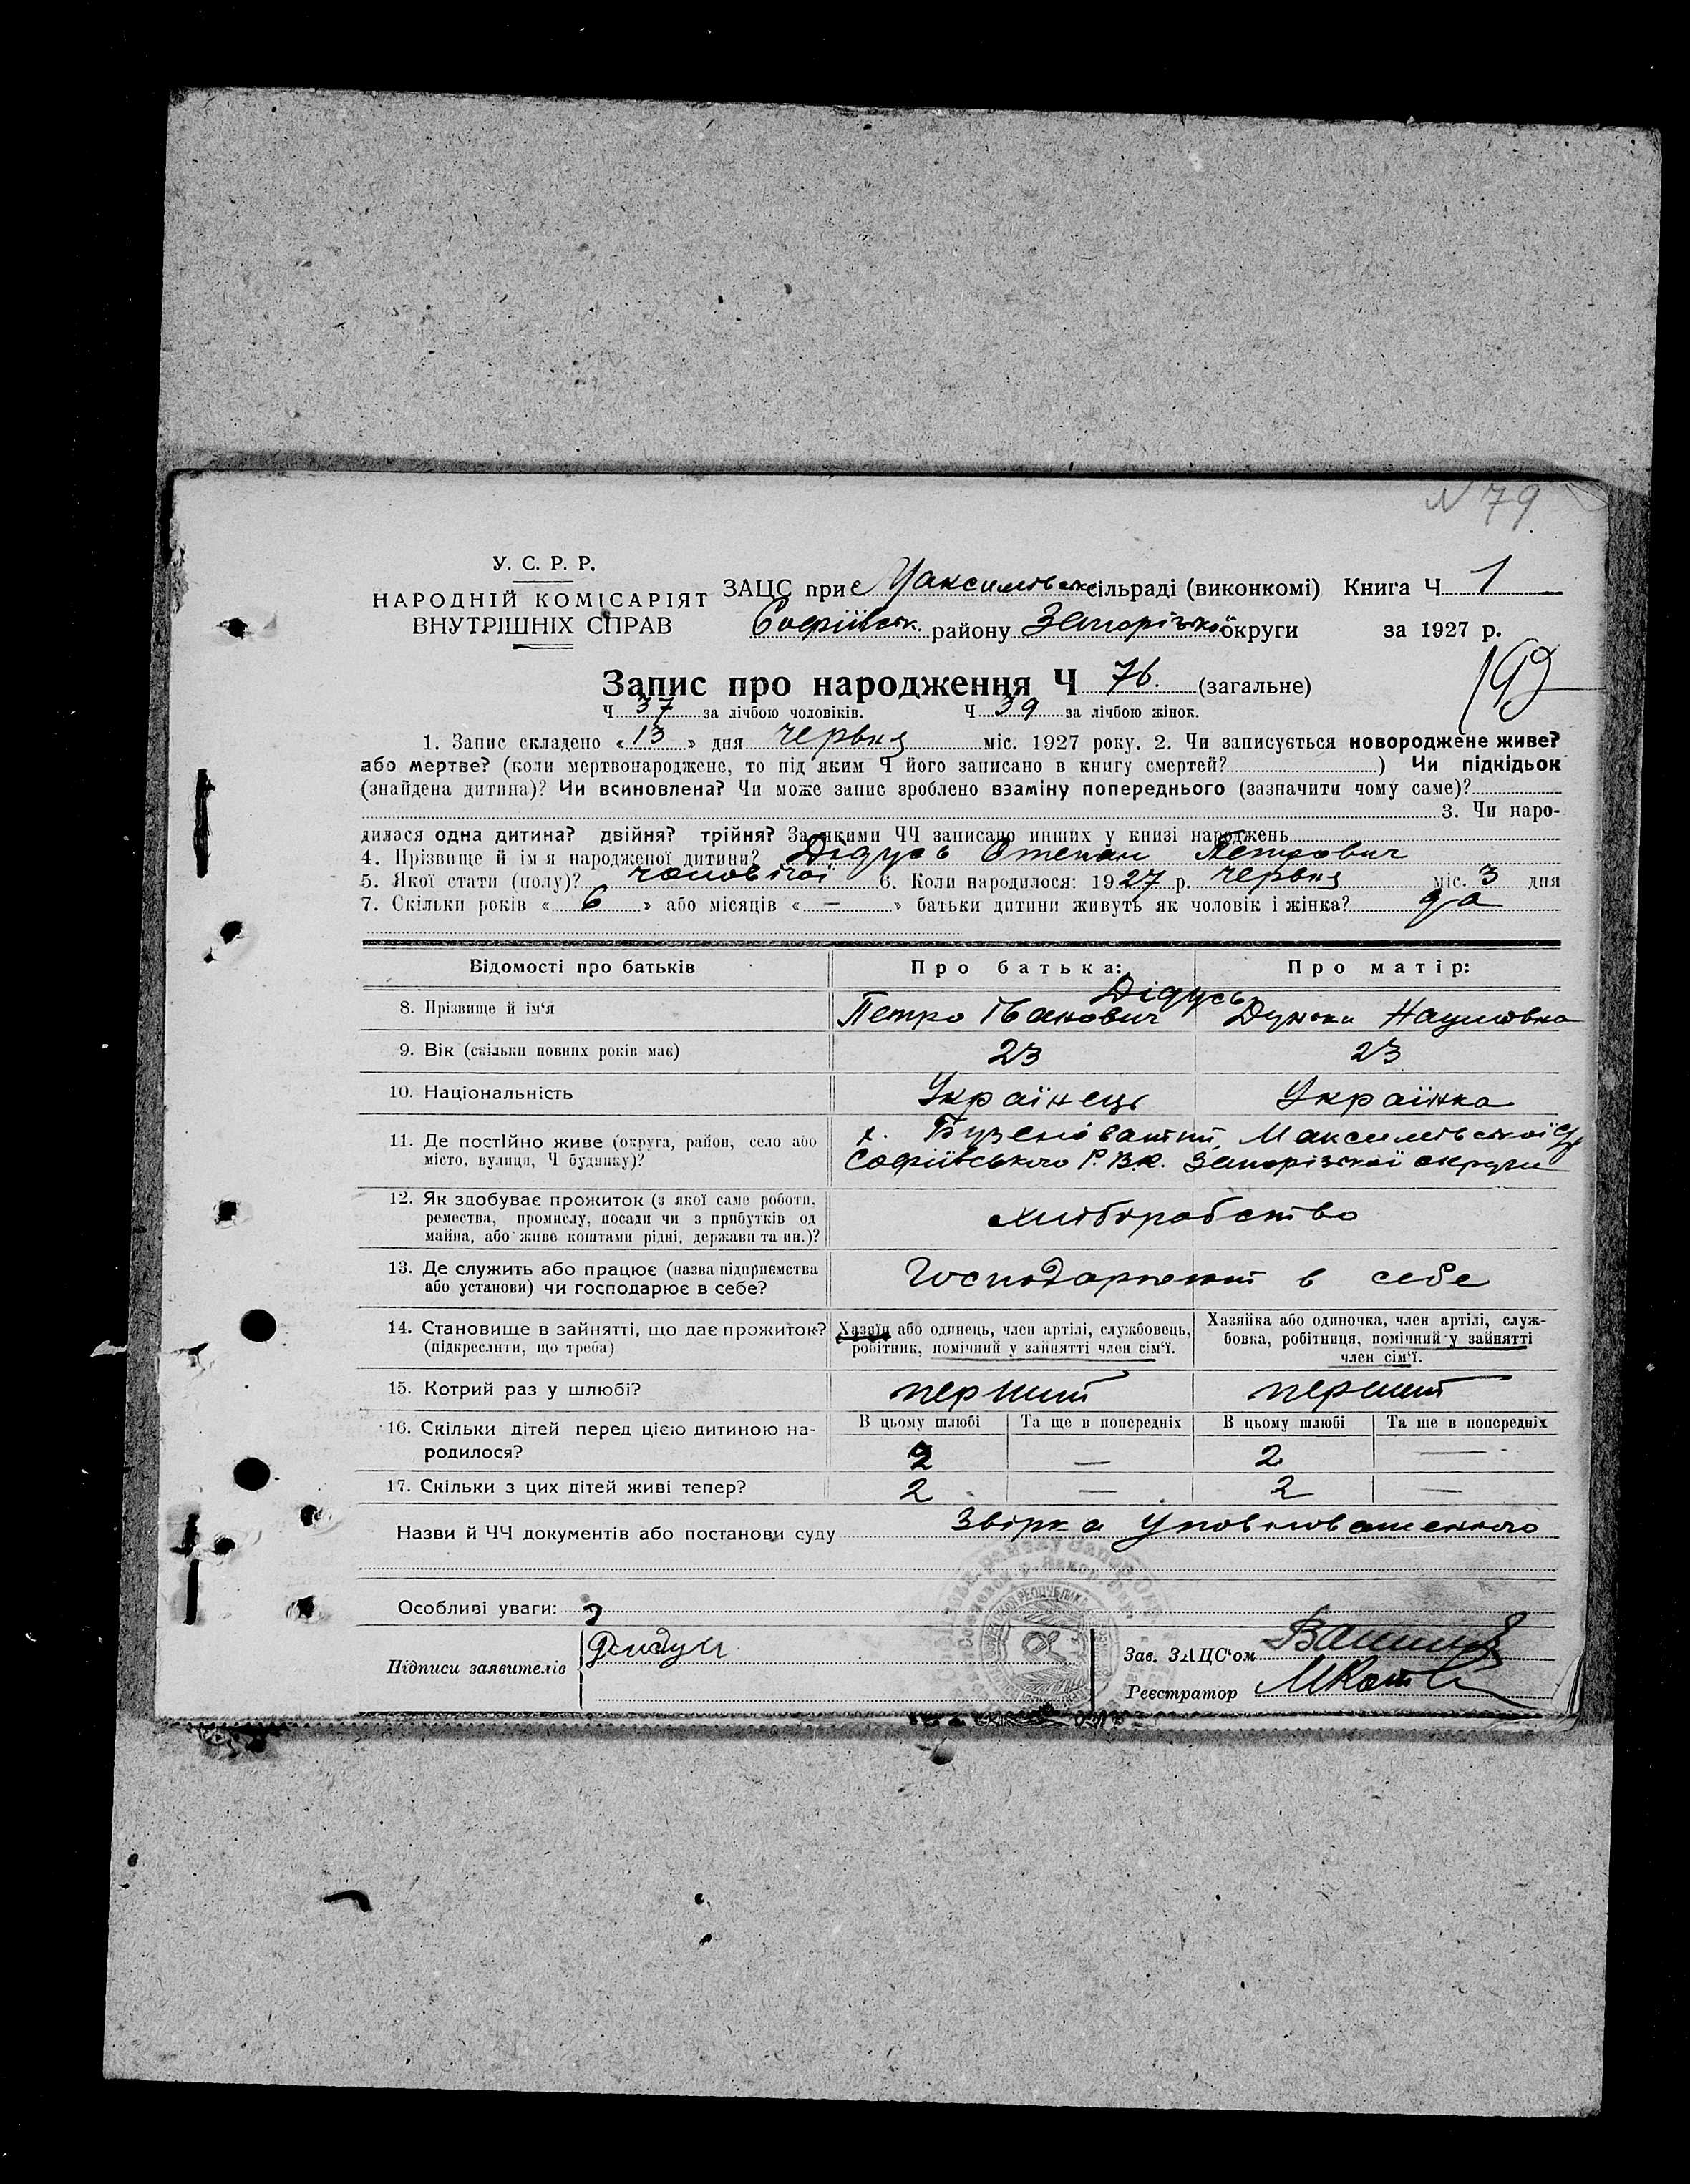 N 79
У. С. Р. Р.
НАРОДНІЙ КОМІСАРІЯТ
ВНУТРІШНІХ СПРАВ
ЗАЦС при Максимівськ сільраді (виконкомі) Книга Ч 1
Софіївськ. району Запорізької округи за 1927 р.
Запис про народження Ч 76. (загальне)
Ч 37 за лічбою чоловіків. Ч 39 за лічбою жінок.
1. Запис складено « 13 » дня червня міс. 1927 року. 2. Чи записується новороджене живе?
або мертве? (коли мертвонароджене, то під яким Ч його записано в книгу смертей? ) Чи підкідьок
(знайдена дитина)? Чи всиновлена? Чи може запис зроблено взаміну попереднього (зазначити чому саме)?
3. Чи наро-
дилася одна дитина? двійня? трійня? За якими ЧЧ записано инших у книзі народжень
4. Прізвище й ім'я народженої дитини? Дідусь Степан Петрович
5. Якої стати (полу)? чоловічої 6. Коли народилося: 1927 р. червня міс. 3 дня
7. Скільки років « 6 » або місяців « — » батьки дитини живуть як чоловік і жінка? да
Відомості про батьків Про батька: Про матір:
Дідусь
8. Прізвище й ім'я Петро Іванович Наумовна
9. Вік (скільки повних років має) 23 23
10. Національність Українець Українка
11. Де постійно живе (округа, район, село або х. Максимівської
місто, вулиця, Ч будинку)? Софіївського Р.В.К. Запорізької округи
12. Як здобуває прожиток (з якої саме роботи,
ремества, промислу, посади чи з прибутків од хліборобство
майна, або живе коштами рідні, держави та ин.)?
13. Де служить або працює (назва підприємства Господарюють в себе
або установи) чи господарює в себе?
14. Становище в зайнятті, що дає прожиток? Хазяїн або одинець, член артілі, службовець, Хазяйка або одиночка, член артілі, служ-
(підкреслити, що треба) робітник, помічний у зайнятті член сім'ї. бовка, робітниця, помічний у зайнятті
член сім'ї.
15. Котрий раз у шлюбі? перший перший
16. Скільки дітей перед цією дитиною на- В цьому шлюбі Та ще в попередніх В цьому шлюбі Та ще в попередніх
родилося? 2 — 2 —
17. Скільки з цих дітей живі тепер? 2 — 2 —
Назви й ЧЧ документів або постанови суду Звірка уповноваженого
Особливі уваги:
Підписи заявителів
Зав. ЗАЦС'ом
Реєстратор